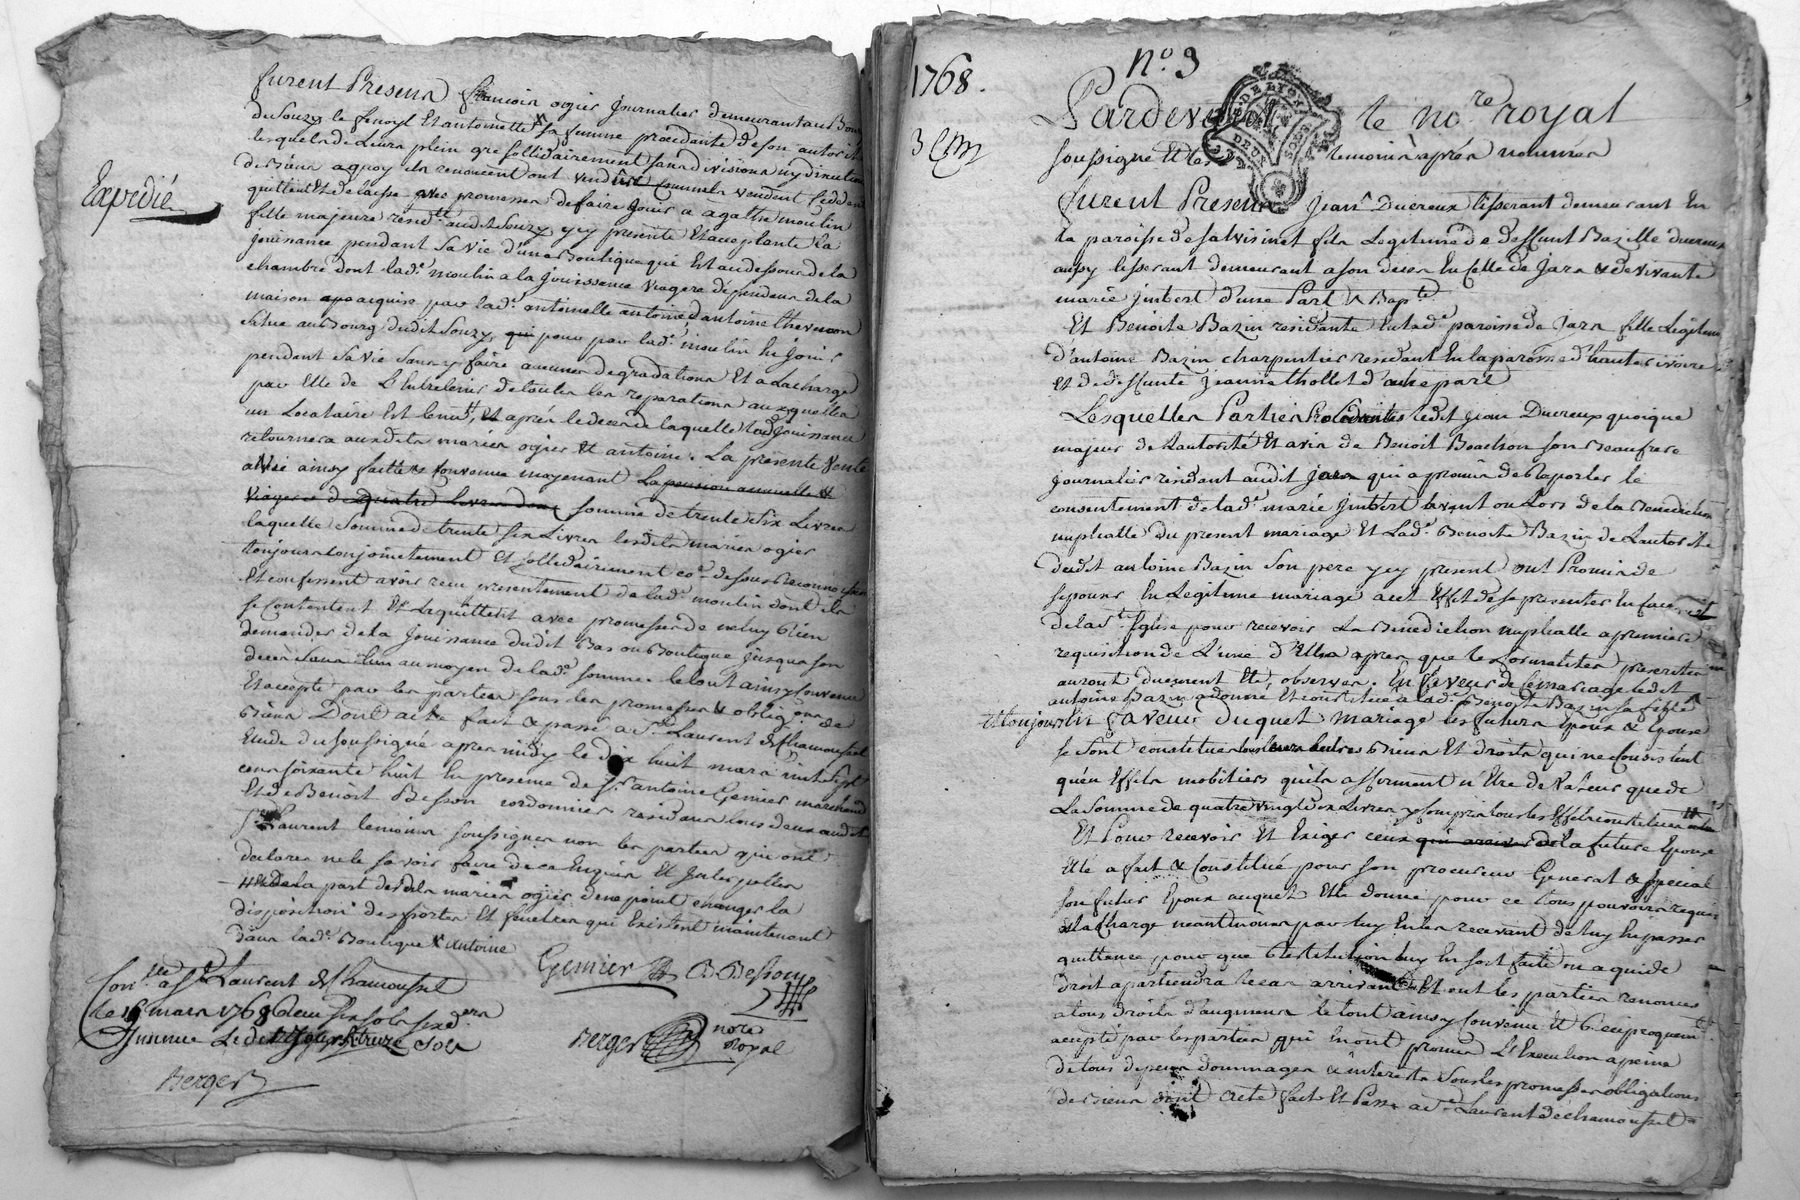 furent Presens françois ogier journalier demeurant au Bourg
de Souzy le fenoyl Et antoinette sa femme procédante de son autorité
lesquels de Leurs plein gré sollidairement sans divisions ny discution
de Biens a quoy ils renoncent ont vendu vendent cedent
quittent Et delaisse avec promesses de faire Jouir a agathe moulin
fille majeure resid.te audit Souzy ycy presente Et acceptante La
jouissance pendant sa vie d'une Boutique qui Est au dessous de la
chambre dont lad.e moulin a la jouissance viagere dependens de la
maison acquise par lad.e antoinette antoine d'antoine thevenon
Scitue au Bourg dudit Souzy, pour par lad.e moulin En jouir
pendant sa vie Sans y faire aucunes degradations Et a la charge
par Elle de L'Entretenir de toutes les reparations auxquelles
un Locataire Est tenu, Et après le deces de laquelle lad. jouissance
retournera auxdits mariés ogier Et antoine. La présente vente
ainsy faitte Convenue moyenant La pension annuelle &
viagere de quatre Livres somme de trente six Livres
laquelle Somme de trente six Livres lesdits mariés ogier
toujours conjointement Et sollidairement co.e dessus Reconnoissent
Et confessent avoir recu presentement de lad.e moulin dont ils
se Contentent Et Lequittent avec promesses de ne luy Rien
demander de la jouissance dudit Bas ou Boutique jusqu'a son
deces au moyen de lad.e somme. le tout ainsy Convenu
Et accepté par les parties sous les promesses & oblig.ons de
Biens Dont acte fait & passé a S.t Laurent de Chamousset
Etude du soussigné apres midy le dix huit mars mil sept
cens soixante huit En presence de S.r antoine Genier marchand
Et de Benoit Besson cordonnier residans tous deux audit
S.t Laurent temoins soussignés non les parties qui ont
declarer ne le scavoir faire de ce Enquises Et Interpellés
de la part desdits mariés ogier de ne point changer la
disposition des portes Et fenetres qui Existent maintenant
dans lad.e Boutique & antoine
Expedié
Genier B Besson
Con.llé a S.t Laurent de Chamousset
le mars 1768
Insinué
Berger
Berger note
Royal
1768.
n.o 3
Pardevant le no.re royal
DE LYON
DEUX SOLS
soussigné Et les temoins après nommés
furent Presens Jean Ducreux tisserant demeurant En
la paroisse de fils Legitime de deffunt Bazille ducreux
aussy tisserant demeurant a son deces En celle de Jars & de vivante
marie jmbert d'une Part & Bap.te
Et Benoite Bazin residante En lad.e paroisse de Jars fille Legitime
d'antoine Bazin charpentier residant En la paroisse d'hauterivoire
Et de deffunte jeanne thollet d'autre part
Lesquelles Parties Procedantes ledit jean Ducreux quoique
majeur de Lautorité Et avis de Benoit Bouchon son Beaufrere
journalier residant audit Jars qui a promis de Raporter le
consentement de lad.e marie jmbert avant ou Lors de la Benediction
nuptialle du present mariage Et Lad.e Benoite Bazin de Lautorité
dudit antoine Bazin Son pere ycy present ont Promis de
sepouser En Legitime mariage a cet Effet de se presenter En face
de la S.te Eglise pour recevoir La Benediction nuptialle a premiere
requisition de L'une d'Elles apres que les formalités prescrites
auront duement Eté observés. En faveur de ce mariage ledit
antoine Bazin a donné Et constitué a lad.e Benoite Bazin sa fille
Et toujours En faveur duquel mariage les futurs Epoux & Epouse
se sont constitués tous leurs autres Biens Et droits qui ne Consistent
qu'en Effets mobiliers qu'ils assurment n'Etre de Valeur que de
La Somme de quatre vingt dix Livres y compris tous les Effets constitués
Et Pour recevoir Et Exiger ceux de la future Epouse
Elle a fait & Constitué pour son procureur General & special
son futur Epoux auquel Elle donne pour ce tous pouvoirs requis
Et a la Charge neantmoins par luy En les recevant de luy En passer
quittance pour que Restitution luy En soit faite ou a qui de
droit apartiendra le cas arrivant Et ont les parties renoncé
a tous droits d'augment le tout ainsy convenu Et reciproquem.t
accepté par les parties qui En ont promis L'Execution a peine
de tous depens dommages & interets Sous les promesses obligations
de Biens dont Acte fait Et Passé a S.t Laurent de chamousset